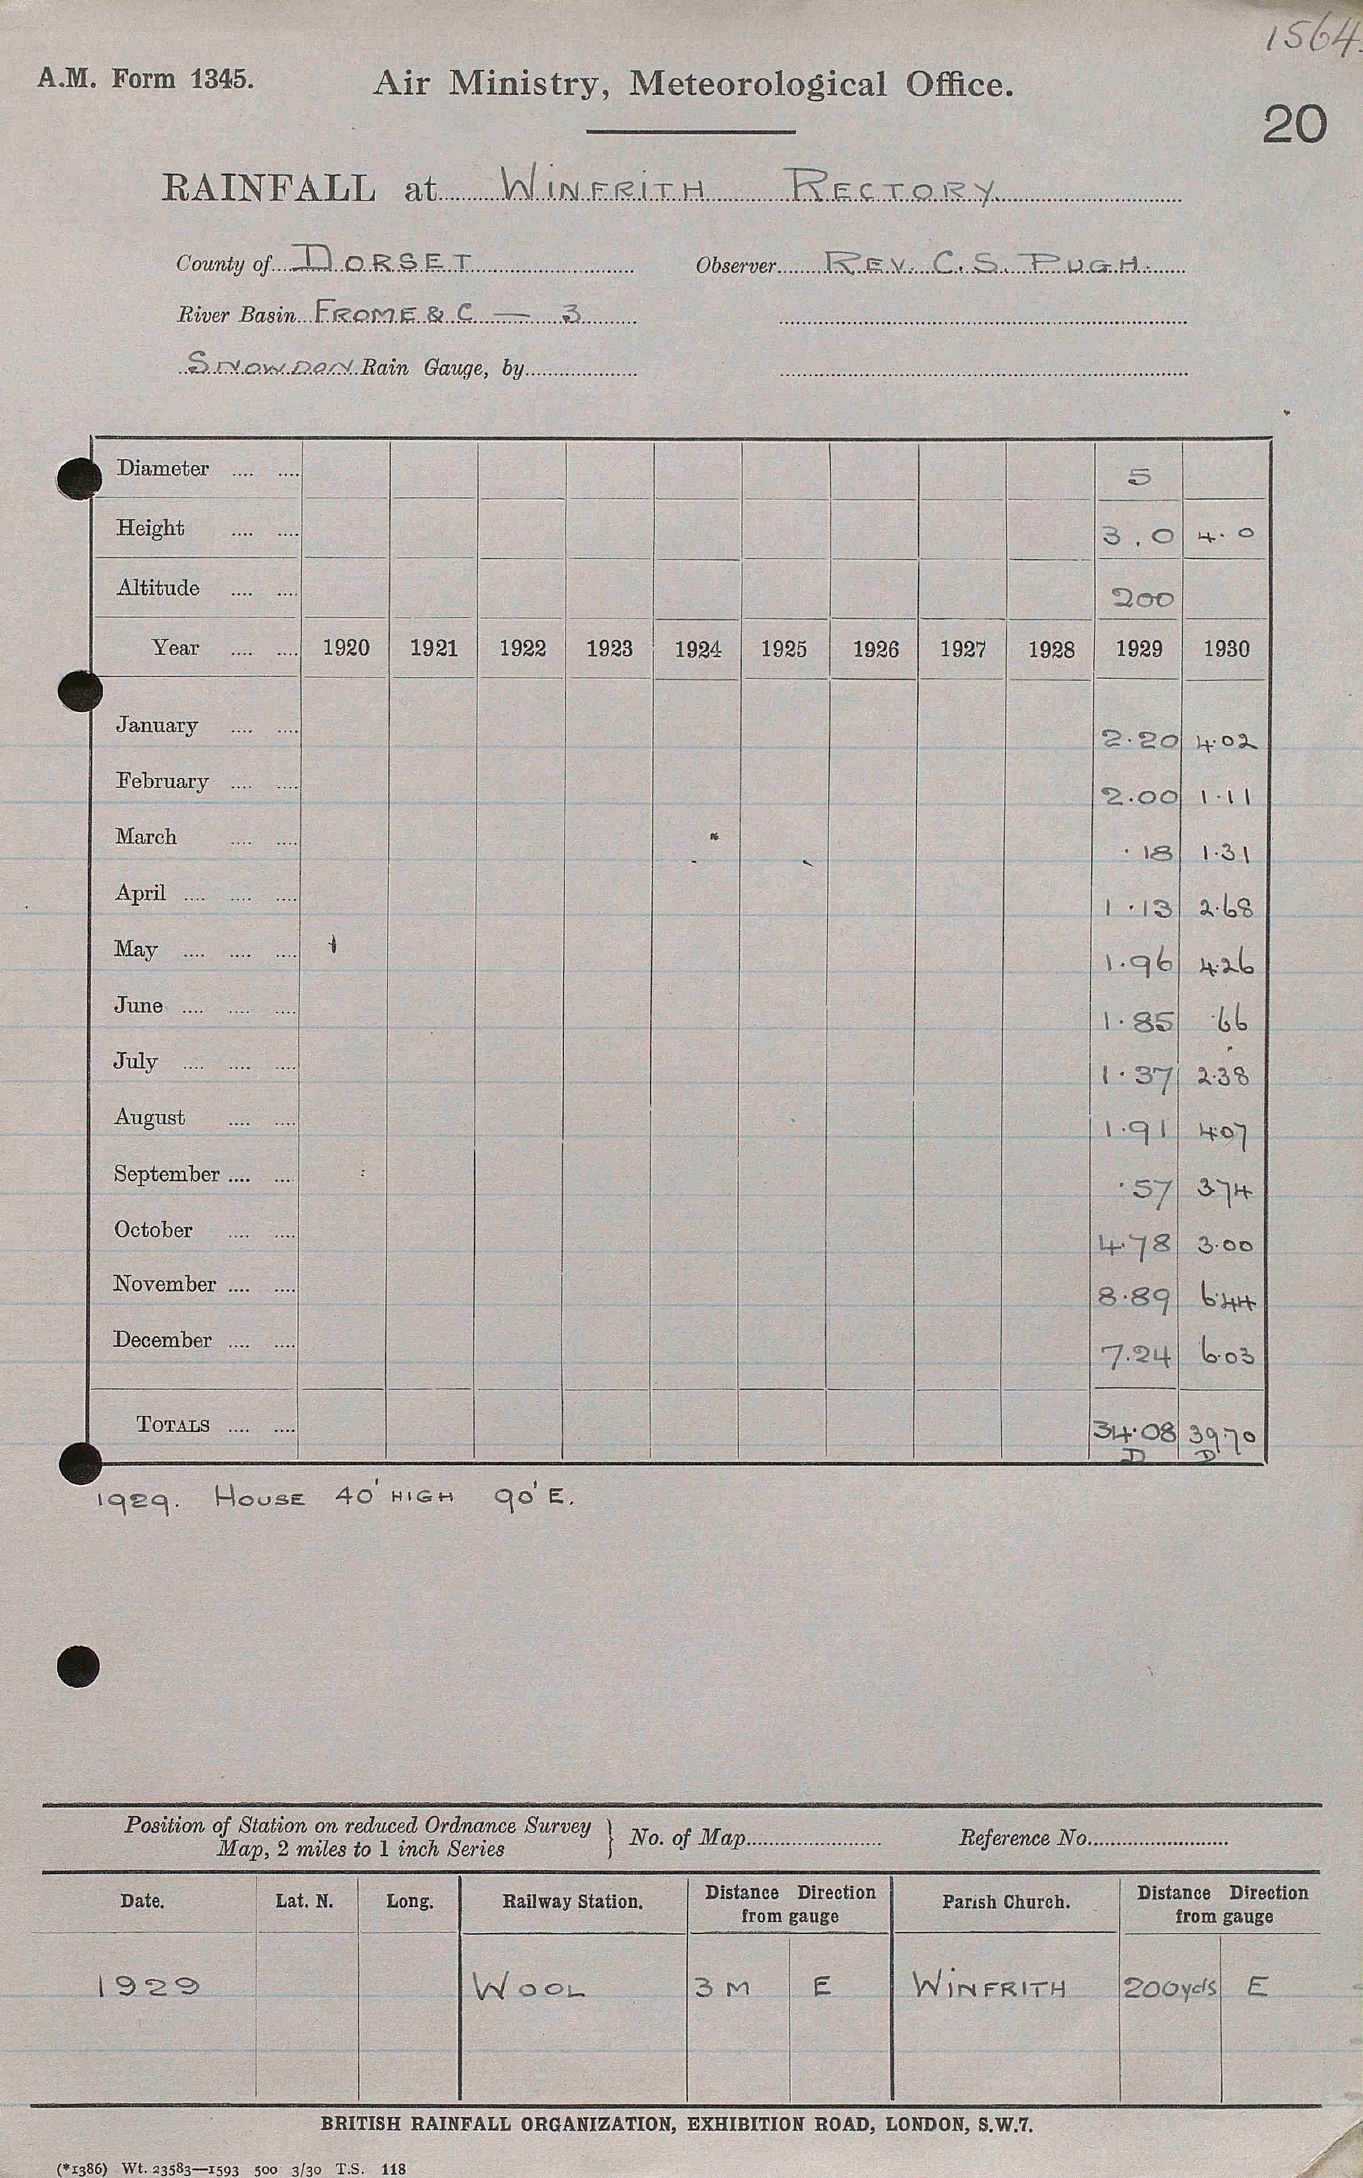 1564
A.M. Form 1345. Air Ministry, Meteorological Office.
20
RAINFALL at WINFRITH RECTORY
County of DORSET Observer REV. C. S. PUGH.
River Basin FROME & C — 3
SNOWDON Rain Gauge, by
Diameter 5
Height 3.0 4.0
Altitude 200
Year 1920 1921 1922 1923 1924 1925 1926 1927 1928 1929 1930
January 2.20 4.02
February 2.00 1.11
March .18 1.31
April 1.13 2.68
May 1.96 4.26
June 1.85 .66
July 1.37 2.38
August 1.91 4.07
September .57 3.74
October 4.78 3.00
November 8.89 6.44
December 7.24 6.03
TOTALS 34.08 39.70
D D
1929. HOUSE 40' HIGH 90' E.
Position of Station on reduced Ordnance Survey
Map, 2 miles to 1 inch Series } No. of Map Reference No.
Date. Lat. N. Long. Railway Station. Distance Direction from gauge Parish Church. Distance Direction from gauge
1929 WOOL 3 M E WINFRITH 200yds E
BRITISH RAINFALL ORGANIZATION, EXHIBITION ROAD, LONDON, S.W.7.
(*1386) Wt. 23583—1593 500 3/30 T.S. 118